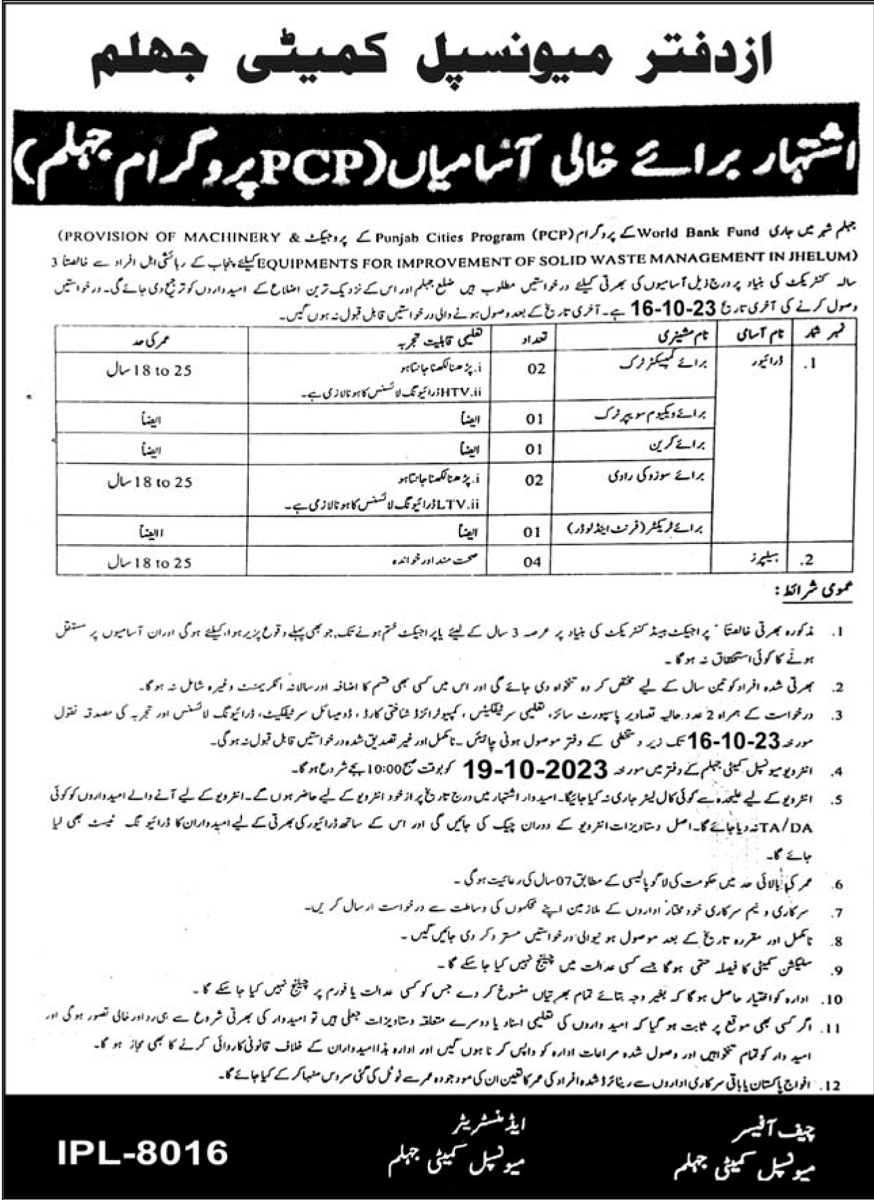 ازدفتر میونسپل کمیٹی جہلم
اشتہار برائے خالی آسامیاں (PCP پروگرام جہلم)
جہلم شہر میں جاری World Bank Fund کے پروگرام Punjab Cities Program (PCP) کے پروجیکٹ (PROVISION OF MACHINERY &
EQUIPMENTS FOR IMPROVEMENT OF SOLID WASTE MANAGEMENT IN JHELUM) کیلئے پنجاب کے رہائشی اہل افراد سے خالصتاً 3
سالہ کنٹریکٹ کی بنیاد پر درج ذیل آسامیوں کی بھرتی کیلئے درخواستیں مطلوب ہیں ضلع جہلم اور اس کے نزدیک ترین اضلاع کے امیدواروں کو ترجیح دی جائے گی۔ درخواستیں
وصول کرنے کی آخری تاریخ 16-10-23 ہے۔ آخری تاریخ کے بعد وصول ہونے والی درخواستیں قابل قبول نہ ہوں گیں۔
نمبر شمار نام آسامی نام مشینری تعداد تعلیمی قابلیت تجربہ عمر کی حد
1. ڈرائیور برائے کمپیکٹر ٹرک 02 i. پڑھنا لکھنا جانتا ہو 18 to 25 سال
ii. HTV ڈرائیونگ لائسنس کا ہونا لازمی ہے۔
برائے ویکیوم سویپر ٹرک 01 ایضاً ایضاً
برائے کرین 01 ایضاً ایضاً
برائے سوزوکی راوی 02 i. پڑھنا لکھنا جانتا ہو 18 to 25 سال
ii. LTV ڈرائیونگ لائسنس کا ہونا لازمی ہے۔
برائے ٹریکٹر (فرنٹ اینڈ لوڈر) 01 ایضاً اایضاً
2. ہیلپرز 04 صحت مند اور خواندہ 18 to 25 سال
عمومی شرائط:
1. مذکورہ بھرتی خالصتاً پراجیکٹ بیسڈ کنٹریکٹ کی بنیاد پر عرصہ 3 سال کے لیئے یا پراجیکٹ ختم ہونے تک, جو بھی پہلے وقوع پزیر ہوا, کیلئے ہوگی اور ان آسامیوں پر مستقل
ہونے کا کوئی استحقاق نہ ہوگا۔
2. بھرتی شدہ افراد کو تین سال کے لیے مختص کردہ تنخواہ دی جائے گی اور اس میں کسی بھی قسم کا اضافہ اور سالانہ انکریمنٹ وغیرہ شامل نہ ہوگا۔
3. درخواست کے ہمراہ 2 عدد حالیہ تصاویر پاسپورٹ سائز، تعلیمی سرٹیفکیٹس، کمپیوٹرائزڈ شناختی کارڈ، ڈومیسائل سرٹیفکیٹ، ڈرائیونگ لائسنس اور تجربہ کی مصدقہ نقول
مورخہ 16-10-23 تک زیر دستخطی کے دفتر موصول ہونی چاہیئں۔ نامکمل اور غیر تصدیق شدہ درخواستیں قابل قبول نہ ہوگی۔
4. انٹرویو میونسپل کمیٹی جہلم کے دفتر میں مورخہ 19-10-2023 کو بوقت صبح 10:00 بجے شروع ہوگا۔
5. انٹرویو کے لیے علیحدہ سے کوئی کال لیٹر جاری نہ کیا جائیگا۔ امیدوار اشتہار میں درج تاریخ پر از خود انٹرویو کے لیے حاضر ہوں گے۔ انٹرویو کے لیے آنے والے امیدواروں کو کوئی
TA/DA نہ دیا جائے گا۔ اصل دستاویزات انٹرویو کے دوران چیک کی جائیں گی اور اس کے ساتھ ڈرائیور کی بھرتی کے لیے امیدواران کا ڈرائیونگ ٹیسٹ بھی لیا
جائے گا۔
6. عمر کی بالائی حد میں حکومت کی لاگو پالیسی کے مطابق 07 سال کی رعائیت ہوگی۔
7. سرکاری و نیم سرکاری خودمختار اداروں کے ملازمین اپنے محکموں کی وساطت سے درخواست ارسال کریں۔
8. نامکمل اور مقررہ تاریخ کے بعد موصول ہونیوالی درخواستیں مسترد کر دی جائیں گیں۔
9. سلیکشن کمیٹی کا فیصلہ حتمی ہوگا جسے کسی عدالت میں چیلنج نہیں کیا جا سکے گا۔
10. ادارہ کو اختیار حاصل ہوگا کہ بغیر وجہ بتائے تمام بھرتیاں منسوخ کر دے جس کو کسی عدالت یا فورم پر چیلنج نہیں کیا جا سکے گا۔
11. اگر کسی بھی موقع پر ثابت ہو گیا کہ امیدواروں کی تعلیمی اسناد یا دوسرے متعلقہ دستاویزات جعلی ہیں تو امیدوار کی بھرتی شروع سے ہی رد اور خالی تصور ہوگی اور
امیدوار کو تمام تنخواہیں اور وصول شدہ مراعات ادارہ کو واپس کرنا ہوں گیں اور ادارہ ہذا امیدواران کے خلاف قانونی کاروائی کرنے کا بھی مجاز ہوگا۔
12. افواج پاکستان یا باقی سرکاری اداروں سے ریٹائرڈ شدہ افراد کی عمر کا تعین ان کی موجودہ عمر سے ٹوٹل کی گئی سروس منہا کر کے کیا جائے گا۔
چیف آفیسر
میونسپل کمیٹی جہلم
ایڈمنسٹریٹر
میونسپل کمیٹی جہلم
IPL-8016